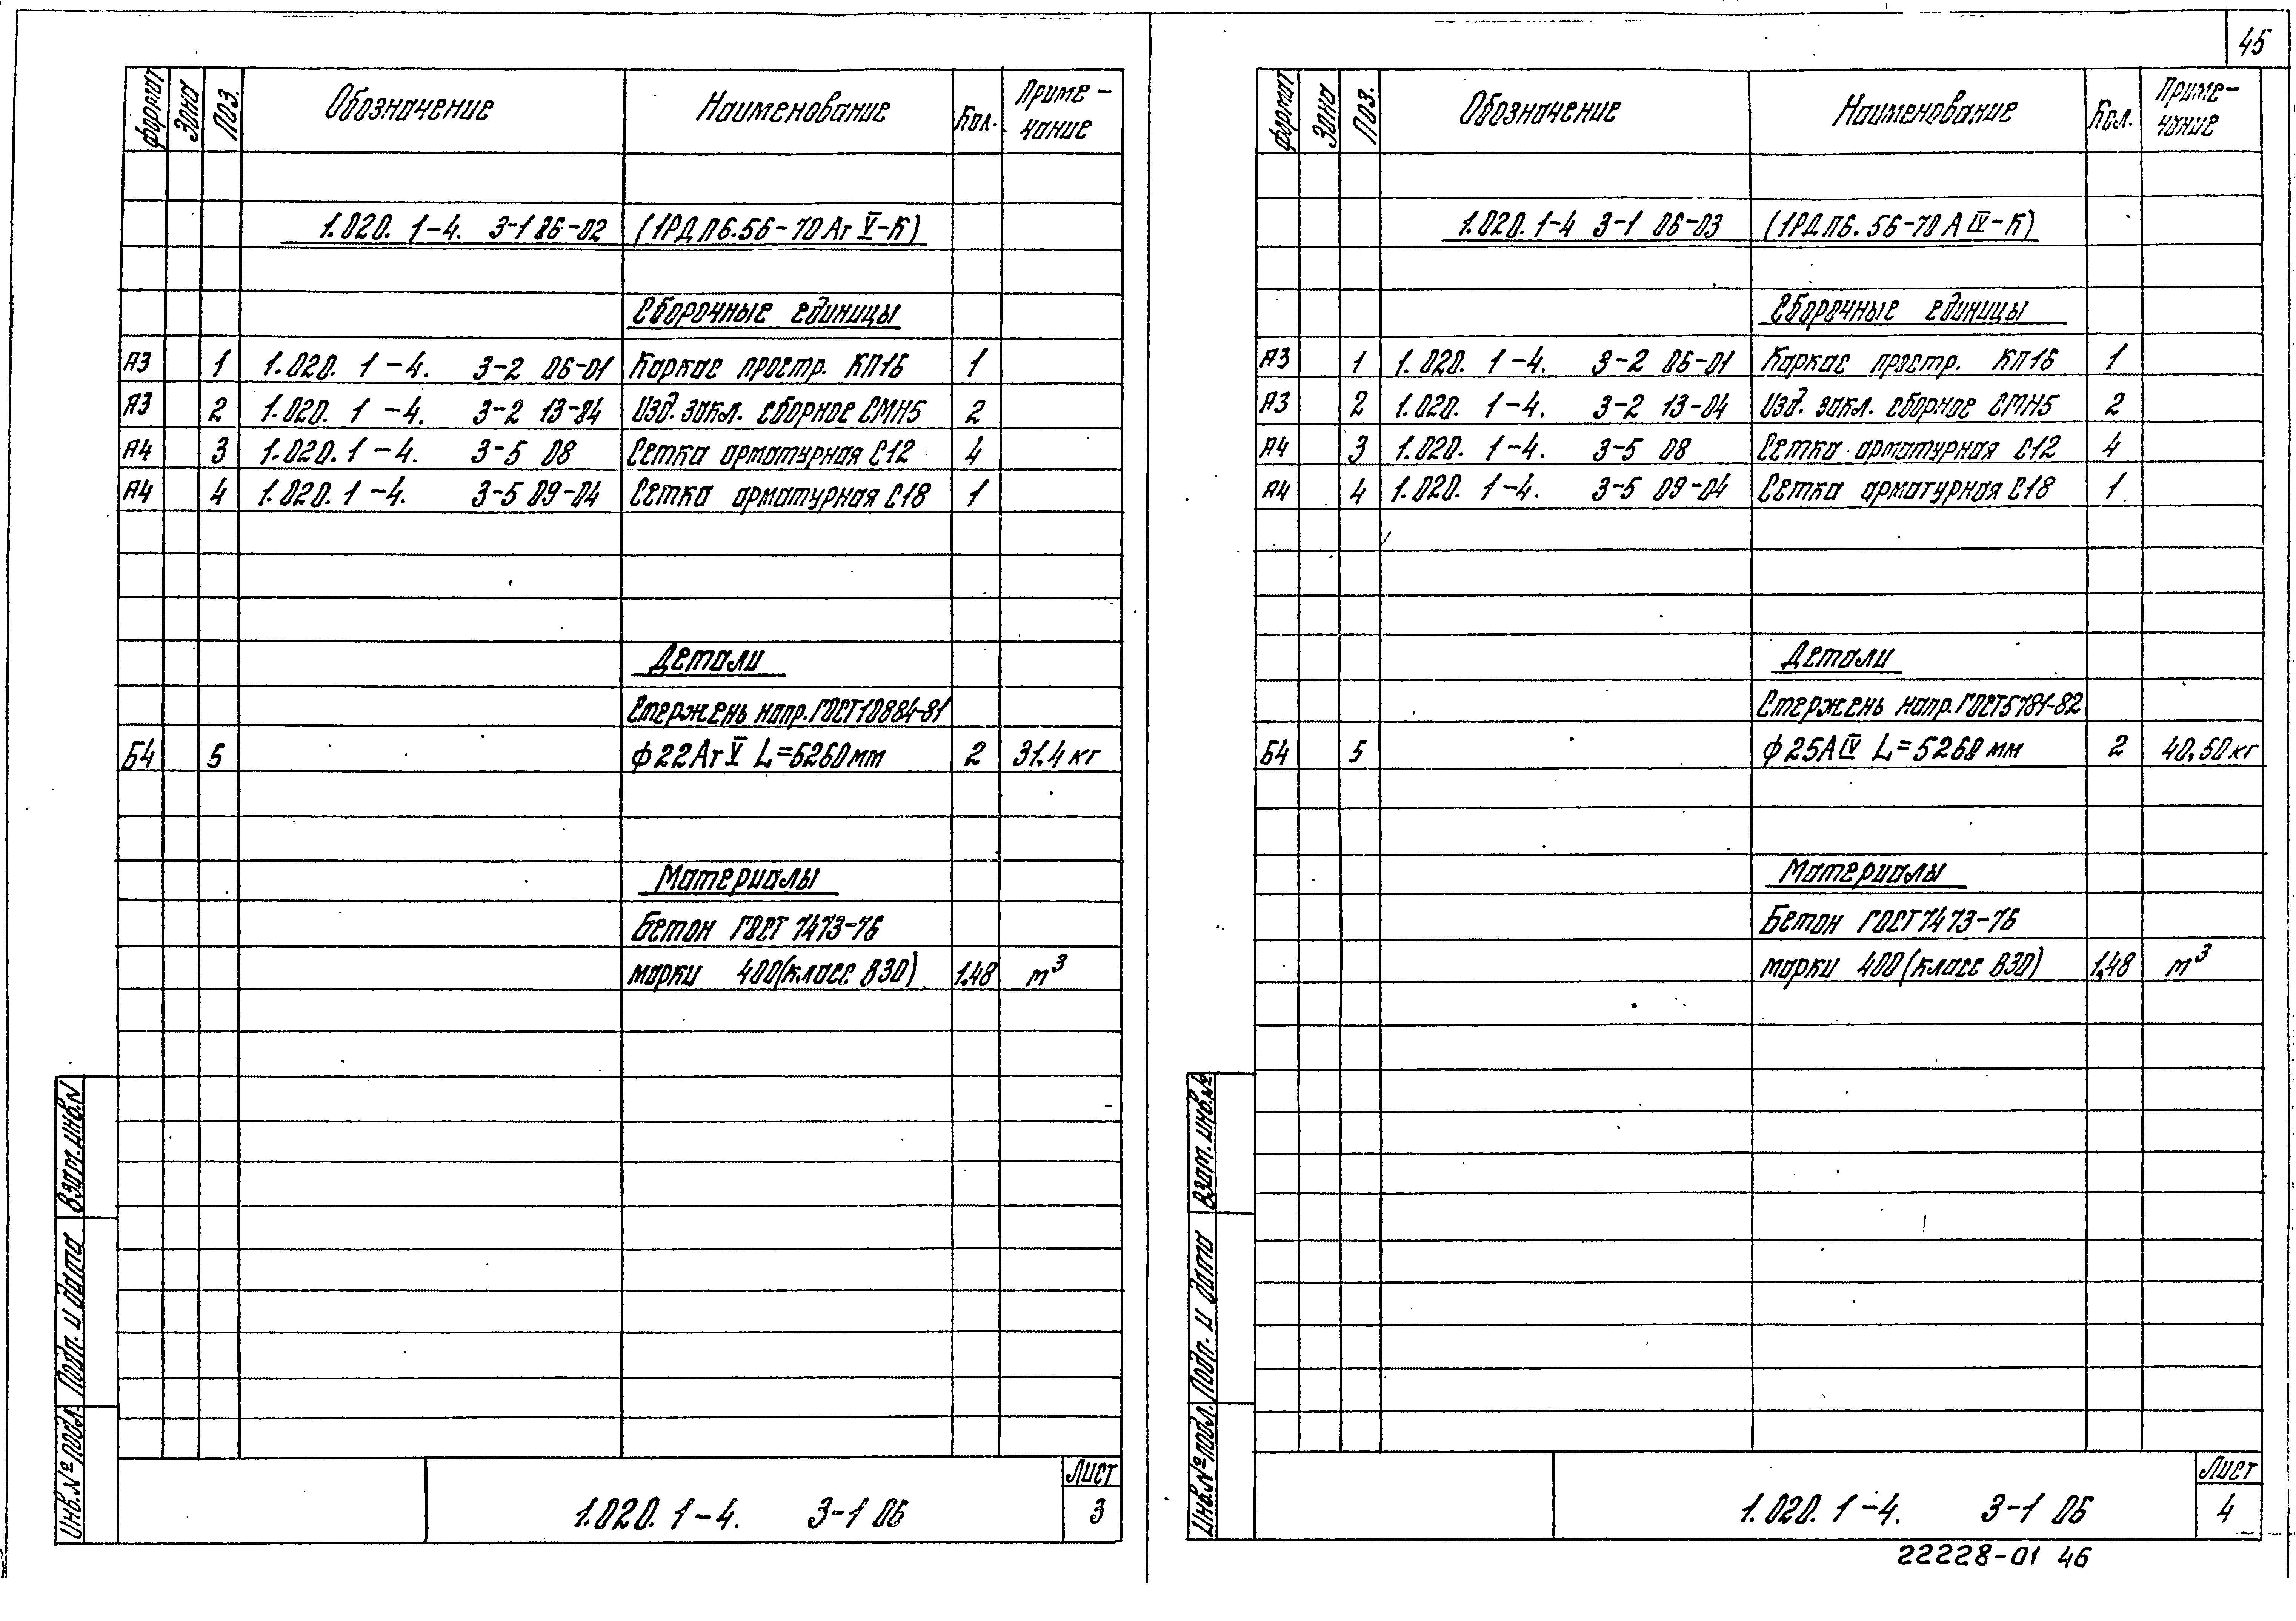 45
Формат Зона Поз. Обозначение Наименование Кол. Приме-
чание
1.020. 1-4. 3-1 06-02 (1РДП6.56-70АтV-К)
Сборочные единицы
А3 1 1.020. 1-4. 3-2 06-01 Каркас простр. КП16 1
А3 2 1.020. 1-4. 3-2 13-04 Изд. закл. сборное СМН5 2
А4 3 1.020. 1-4. 3-5 08 Сетка арматурная С12 4
А4 4 1.020. 1-4. 3-5 09-04 Сетка арматурная С18 1
Детали
Стержень напр. ГОСТ 10884-81
Б4 5 ф22АтV L=5260мм 2 31.4 кг
Материалы
Бетон ГОСТ 7473-76
марки 400(класс В30) 1.48 m³
Взам. инв. N
Подп. и дата
Инв. № подл.
1.020. 1-4. 3-1 06
Лист
3
Формат Зона Поз. Обозначение Наименование Кол. Приме-
чание
1.020. 1-4 3-1 06-03 (1РДП6.56-70АIV-К)
Сборочные единицы
А3 1 1.020. 1-4. 3-2 06-01 Каркас простр. КП16 1
А3 2 1.020. 1-4. 3-2 13-04 Изд. закл. сборное СМН5 2
А4 3 1.020. 1-4. 3-5 08 Сетка арматурная С12 4
А4 4 1.020. 1-4. 3-5 09-04 Сетка арматурная С18 1
Детали
Стержень напр. ГОСТ 5781-82
Б4 5 ф25АIV L=5260мм 2 40,50кг
Материалы
Бетон ГОСТ 7473-76
марки 400(класс В30) 1,48 m³
Взам. инв. №
Подп. и дата
Инв. № подл.
1.020. 1-4. 3-1 06
Лист
4
22228-01 46